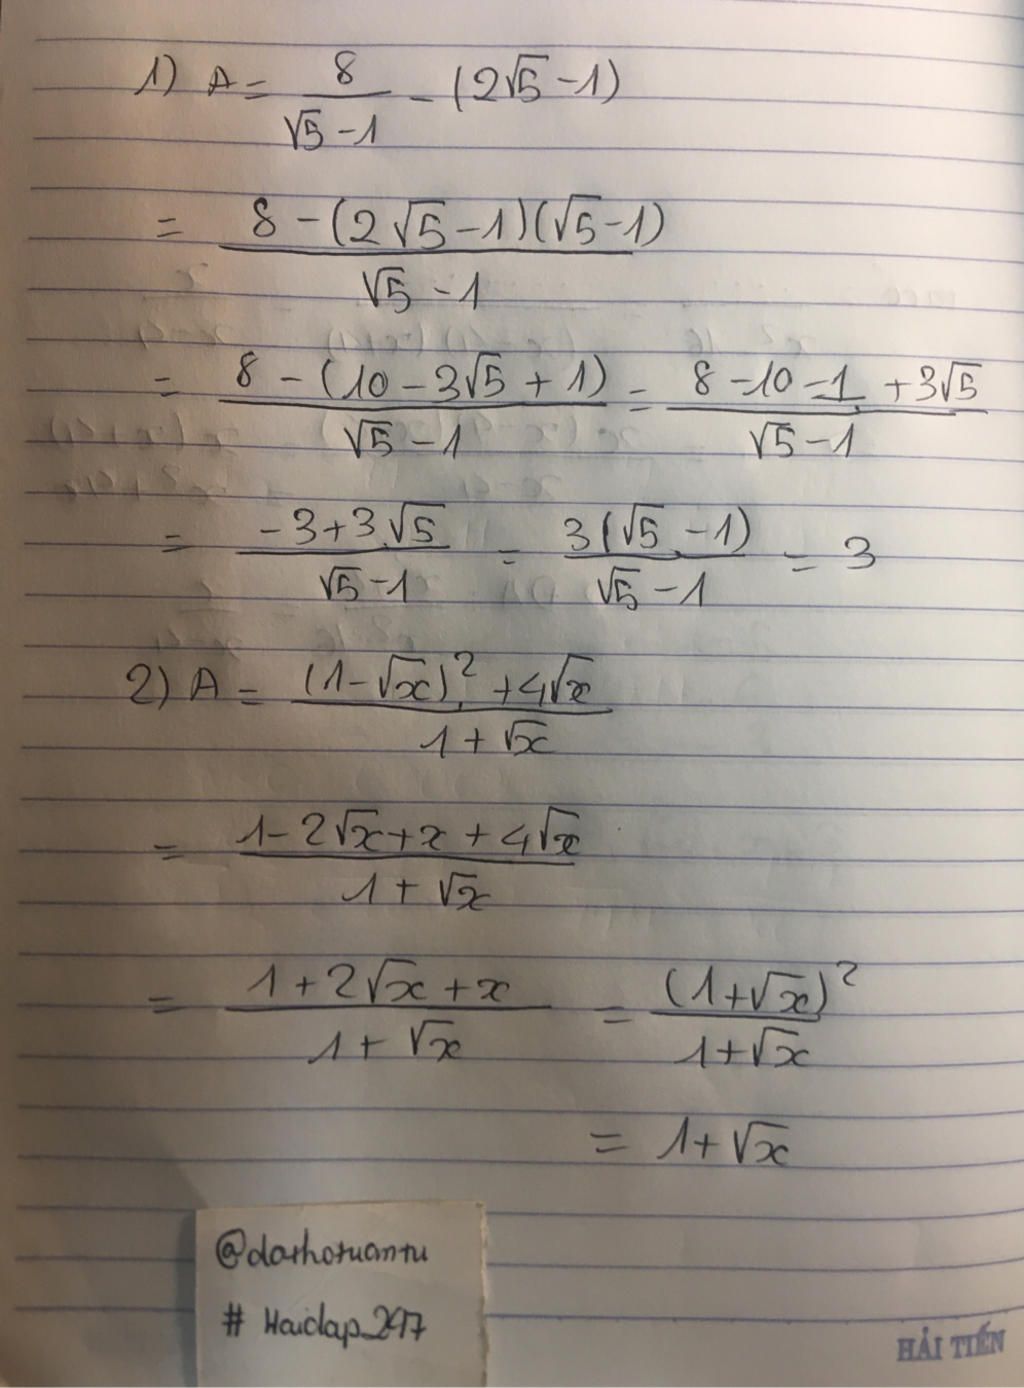 1) A = 8/(√5 - 1) - (2√5 - 1)
= (8 - (2√5 - 1)(√5 - 1))/(√5 - 1)
= (8 - (10 - 3√5 + 1))/(√5 - 1) = (8 - 10 - 1 + 3√5)/(√5 - 1)
= (-3 + 3√5)/(√5 - 1) = 3(√5 - 1)/(√5 - 1) = 3
2) A = ((1 - √x)² + 4√x)/(1 + √x)
= (1 - 2√x + x + 4√x)/(1 + √x)
= (1 + 2√x + x)/(1 + √x) = (1 + √x)²/(1 + √x)
= 1 + √x
@dathotuantu
# Haidap_247
HẢI TIẾN